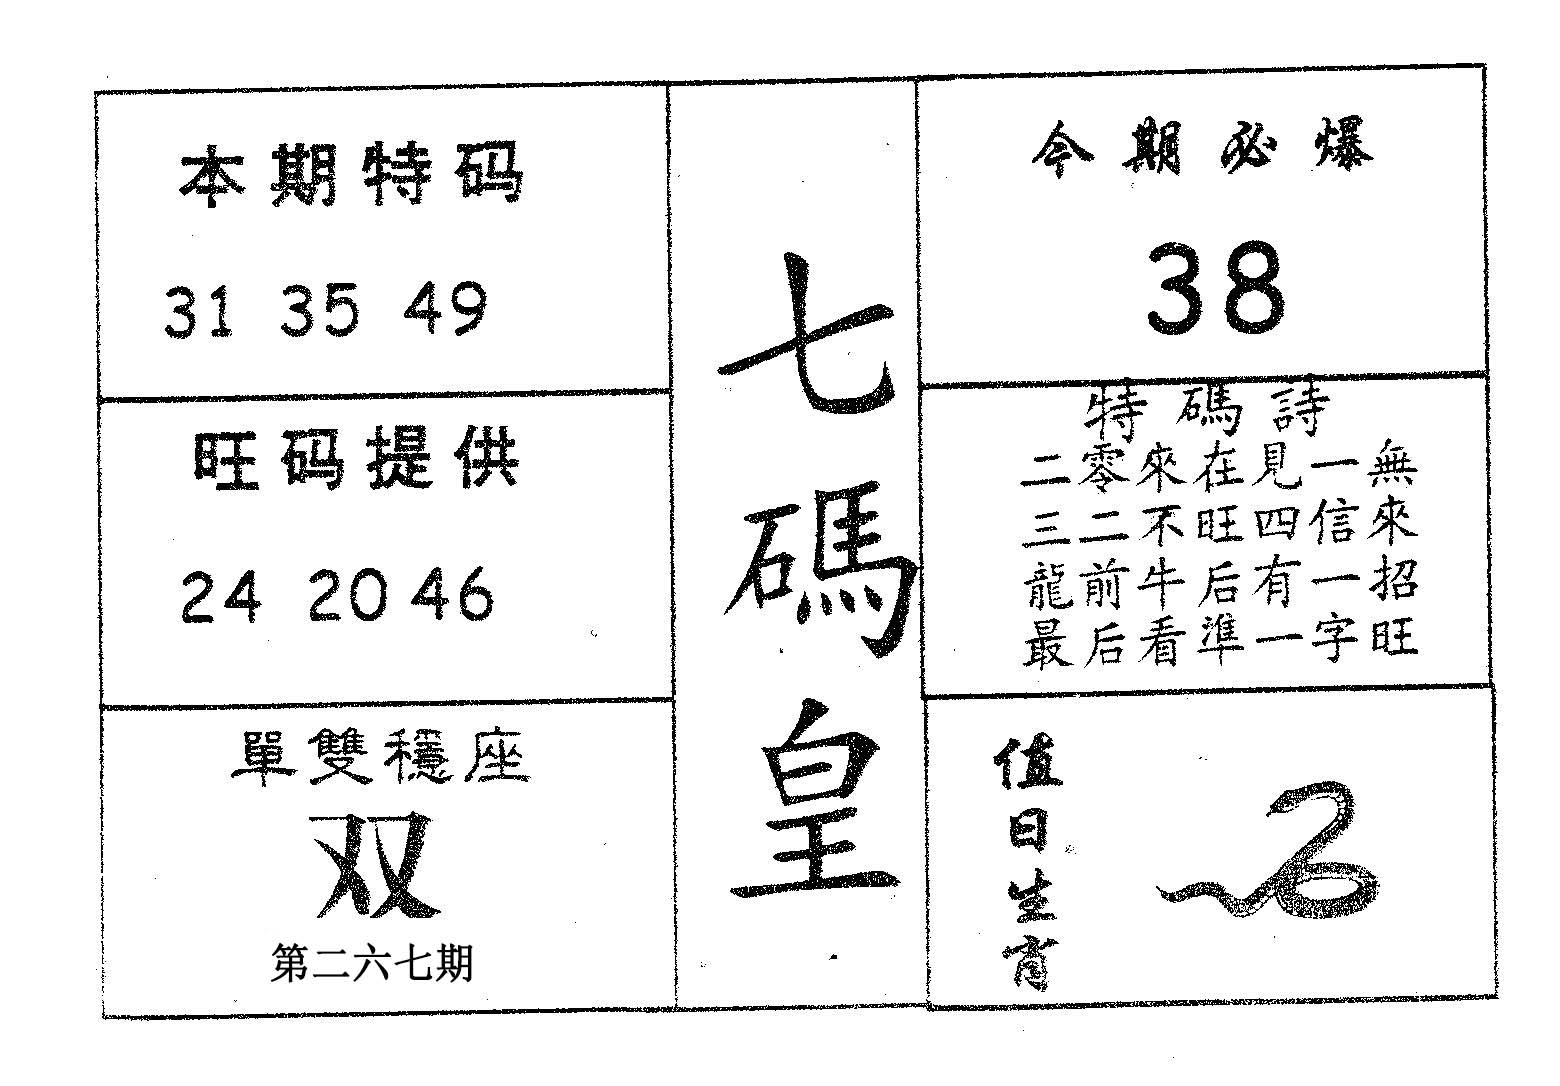 本期特码
31 35 49
旺码提供
24 20 46
單雙穩座
双
第二六七期
七碼皇
今期必爆
38
特碼詩
二零來在見一無
三二不旺四信來
龍前牛后有一招
最后看準一字旺
值日生肖